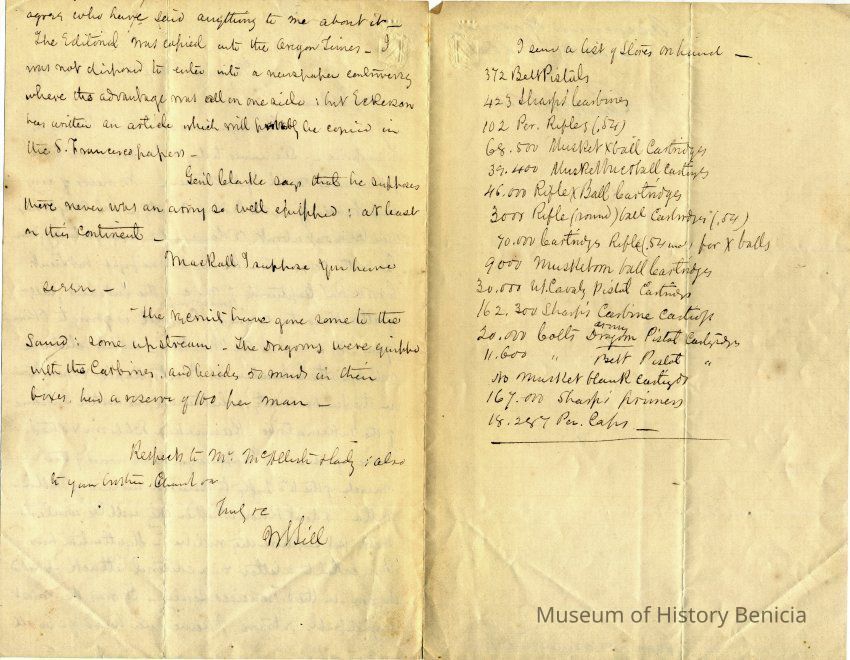 agree who have said anything to me about it —
The Editorial was copied into the Oregon Times — I
was not disposed to enter into a newspaper controversy
where the advantage was all on one side : but Eckerson
has written an article which will probably be copied in
the S. Francisco papers —
Genl Clarke says that he supposes
there never was an army so well equipped ; at least
on this continent —
Mackall I suppose you have
seen —
The recruits have gone some to the
Sound ; some upstream — The Dragoons were equipped
with the Carbines, and besides 50 rounds in their
boxes, had a reserve of 100 per man —
Respects to Mr McAllister & lady ; also
to your
Truly &c
I send a list of Stores on hand —
372 Belt Pistols
423 Sharp's Carbines
102 Per. Rifles (.54)
68.500 Musket X ball Cartridges
39.400 Musket buc & ball Cartridges
46.000 Rifle X Ball Cartridges
3000 Rifle (round) ball Cartridges (.54)
70.000 Cartridges Rifle (.54 in) for X balls
9000 Musketoon ball Cartridges
30.000 Cavaly Pistol Cartridges
162,300 Sharp's Carbine Cartridges
20.000 Colts Army Dragoon Pistol Cartridges
11.600 " Belt Pistol "
No Musket blank Cartridges
167.000 Sharp's primers
18.287 Per. Caps —
Museum of History Benicia